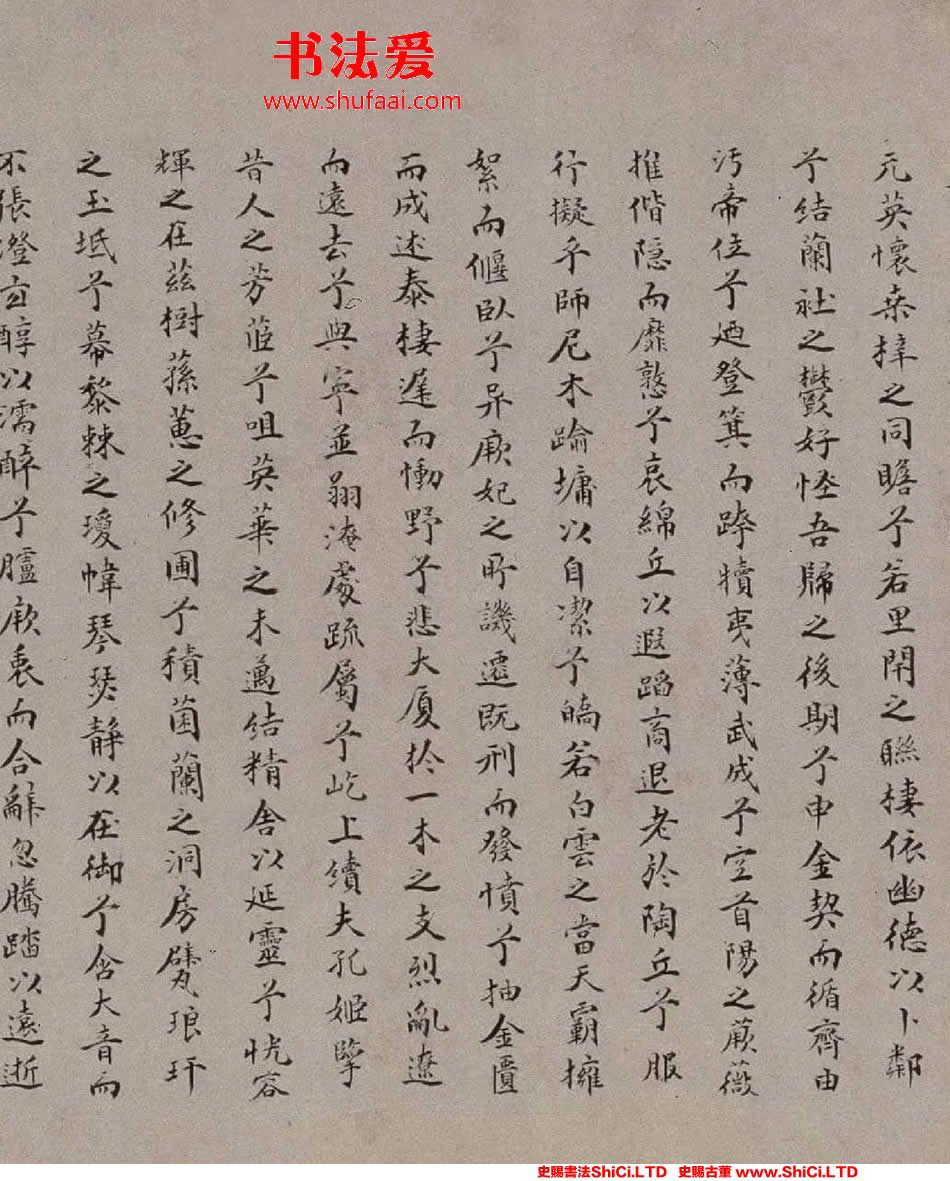 书法爱
www.shufaai.com
元英懷桒梓之同瞻兮若里閈之聯棲依幽德以卜鄰
兮结蘭社之鬱好怪吾歸之後期兮申金契而循齊由
汚帝位兮廼登箕而踤犢夷薄武成兮空首陽之蕨薇
推偕隐而靡憝兮哀綿丘以遐蹈商退老於陶丘兮服
行擬乎師尼木踰墉以自潔兮皜若白雲之當天霸擁
絮而偃臥兮异厥妃之所譏遷既刑而發憤兮抽金匱
而成述泰棲遅而慟野兮悲大厦扵一木之支烈亂遼
而遠去兮與寧並翔淹處疏屬兮屹上續夫孔姬擥
昔人之芳茝兮咀英華之未邁结精舎以延靈兮恍容
輝之在茲樹蓀蕙之修圃兮積菌蘭之洞房甓琅玕
之玉坻兮幕黎棘之瓊幃琴瑟静以在御兮含大音而
不張澄玄醇以濡醉兮臚厥衷而合辭忽騰踏以遠逝
史賜書法ShiCi.LTD 史賜古董 www.ShiCi.LTD